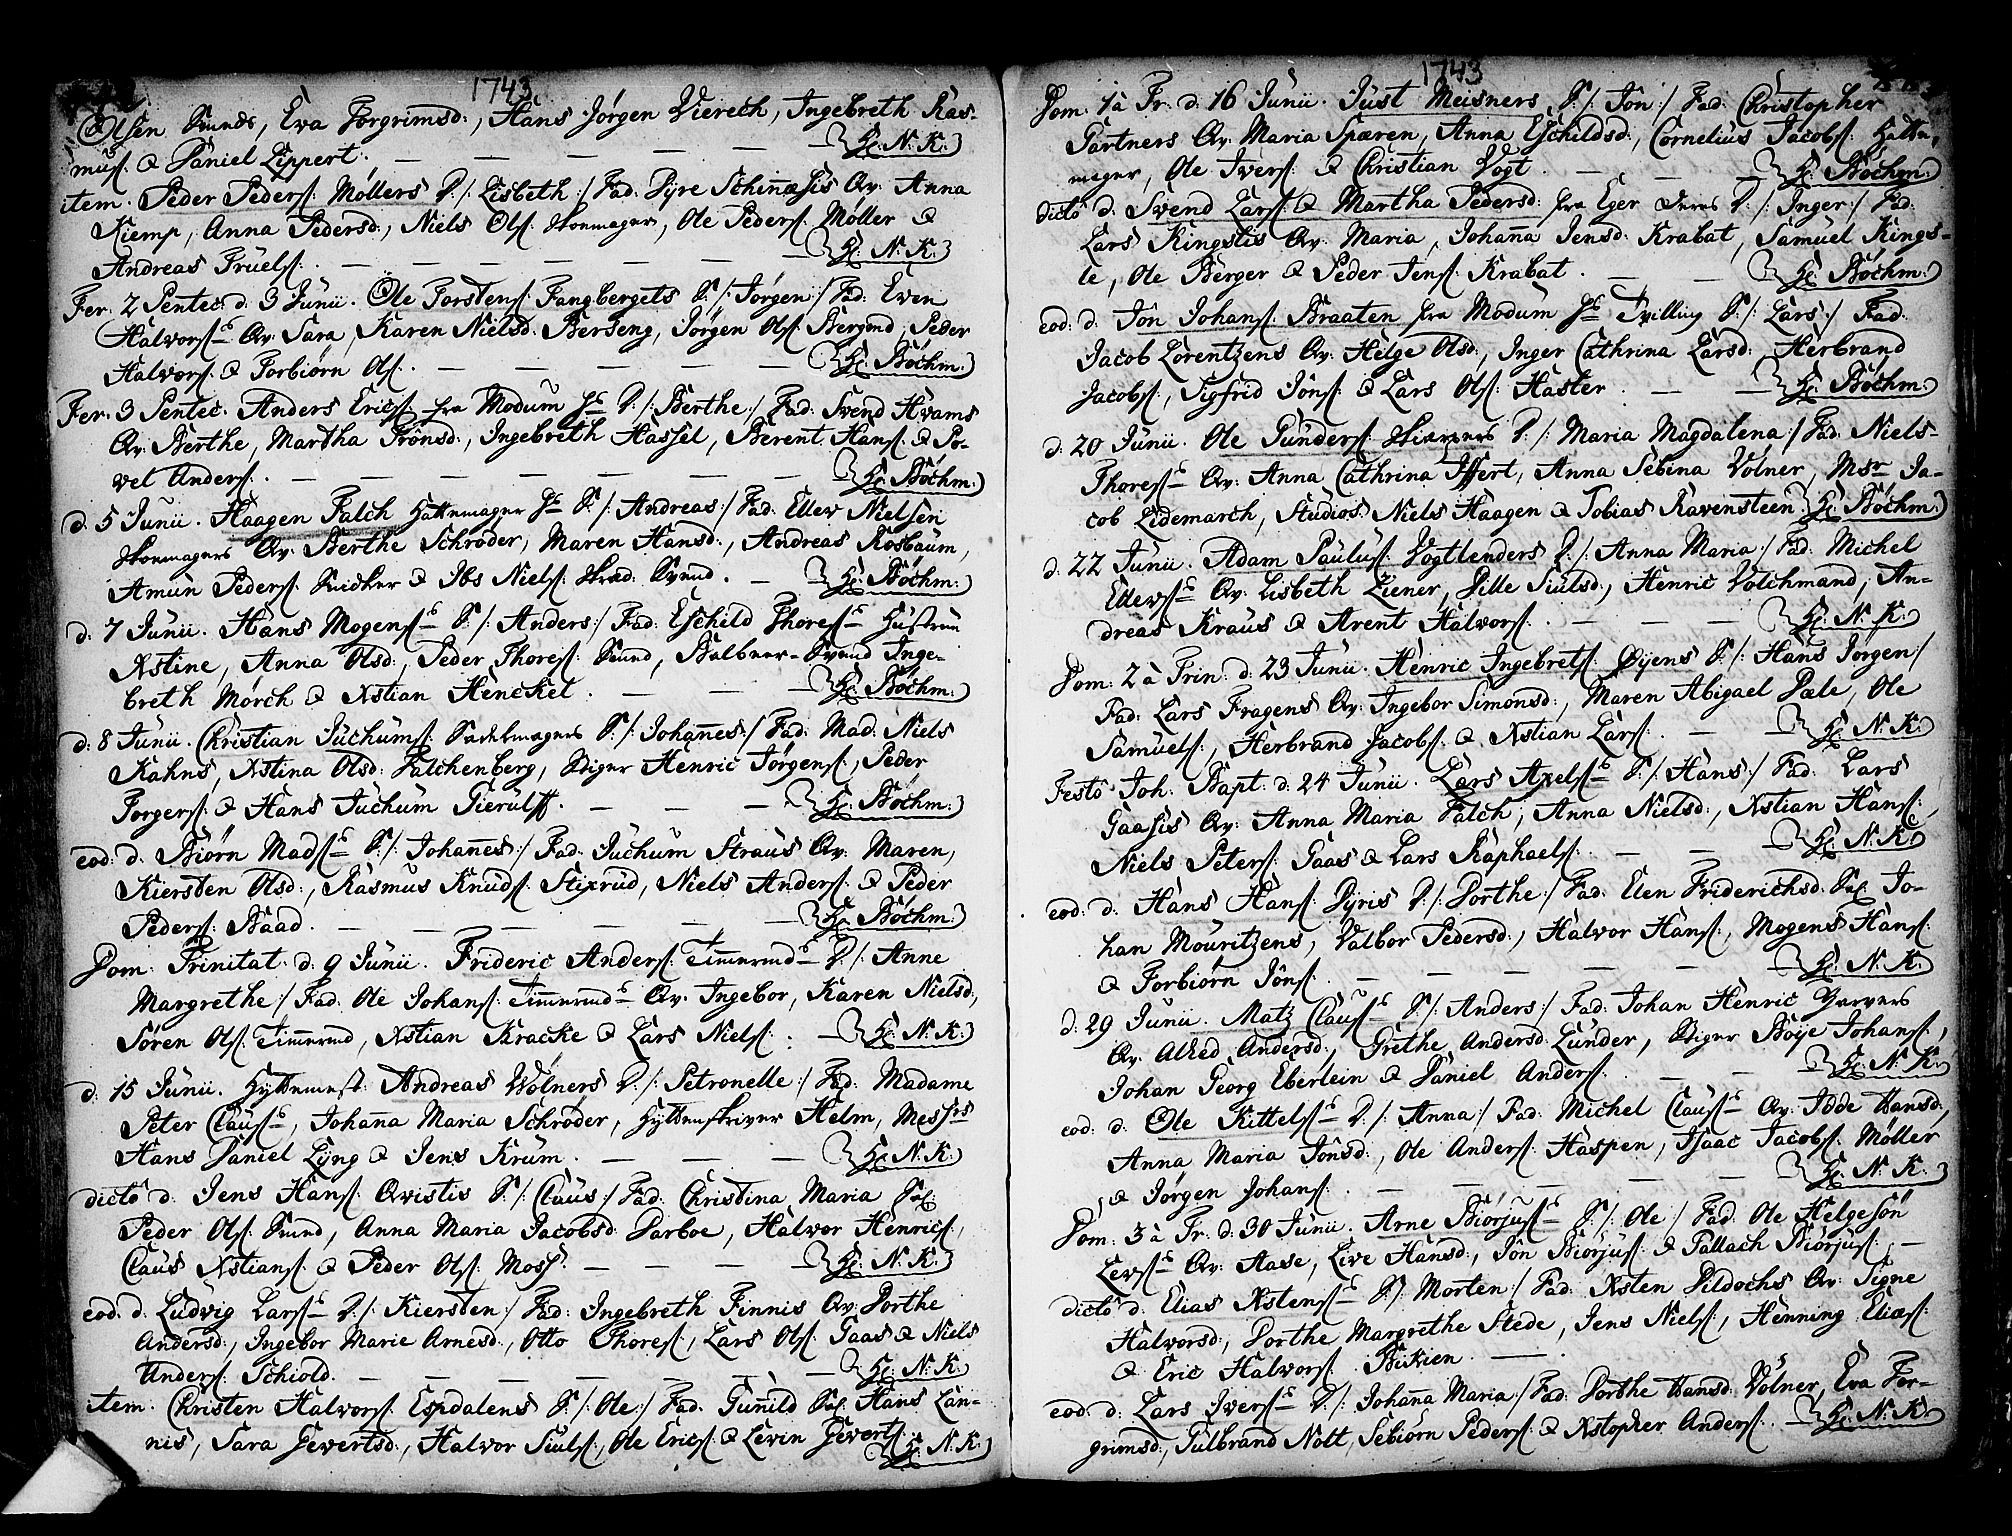 1743
Olsen Smeds, Eva Torgrimsd:, Hans Jørgen Viereck, Ingebreth Ras-
mus: & Daniel Lippert. — Hr. N. K.
item. Peder Peders: Møllers D: /: Lisbeth :/ Fad: Dyre Schinæsis Qv: Anna
Kiemp, Anna Pedersd:, Niels Ols: Skomager, Ole Peders: Møller &
Andreas Truels: — Hr. N. K.
Fer: 2 Pentec: d: 3 Junii. Ole Torstens: Fangbergets S: /: Jørgen :/ Fad: Even
Halvors: Qv: Sara, Karen Nielsd: Berseng, Jørgen Ols: Bergmd, Peder
Halvors: & Torbiørn Ols: — Hr. Bøchm:
Fer: 3 Pentec: Anders Erics: fra Modum D: /: Berthe :/ Fad: Svend Hvams
Qv: Berthe, Martha Trônsd:, Ingebreth Hassel, Berent Hans: & Po-
vel Anders: — Hr. Bøchm:
d: 5 Junii. Haagen Falch Hattemager S: /: Andreas :/ Fad: Ellev Nielsen
Skomagers Qv: Berthe Schrøder, Maren Hansd:, Andreas Rosbaum,
Amun Peders: Snidker & Ibs Niels: Skræd: Svend. — Hr. Bøchm:
d: 7 Junii. Hans Mogens: S: /: Anders :/ Fad: Eschild Thores: Hustrue
Xstine, Anna Olsd:, Peder Thores: Smed, Balbeer-Svend Inge-
breth Mørch & Xstian Henckel. — Hr. Bøchm:
d: 8 Junii. Christian Juchums: Sadelmagers S: /: Johannes :/ Fad: Mad: Niels
Kahns, Xstina Olsd: Falchenberg, Stiger Henric Jørgens:, Peder
Torgers: & Hans Juchum Gierulff. — Hr. Bøchm:
eod: d: Biørn Mads: S: /: Johannes :/ Fad: Juchum Straus Qv: Maren,
Kiersten Olsd:, Rasmus Knuds: Stixrud, Niels Anders: & Peder
Peders: Baad. — Hr. Bøchm:
Dom: Trinitat: d: 9 Junii. Frideric Anders: Timmermd: D: /: Anne
Margrethe :/ Fad: Ole Johans: Timmermd: Qv: Ingebor, Karen Nielsd:,
Søren Ols: Timmermd, Xstian Kracke & Lars Niels: — Hr. N. K.
d: 15 Junii. Hyttemest: Andreas Wölners D: /: Petronelle :/ Fad: Madame
Peter Claus:, Johanna Maria Schrøder, Hytteskriver Helm, Messrs
Hans Daniel Lÿng & Jens Krüm. — Hr. N. K.
dicto d: Jens Hans: Qvistis S: /: Claus :/ Fad: Christina Maria Sal:
Peder Ols: Smed, Anna Maria Jacobsd: Darboe, Halvor Henrics:,
Claus Xstians: & Peder Ols: Moss. — Hr. N. K.
eod: d: Ludvig Lars: D: /: Kiersten :/ Fad: Ingebreth Finnis Qv: Dorthe
Andersd:, Ingebor Marie Arnesd:, Otto Thores:, Lars Ols: Gaas & Niels
Anders: Schiold. — Hr. N. K.
item. Christen Halvors: Espdalens S: /: Ole :/ Fad: Gunnild Sal: Hans Län-
nis, Sara Gevertsd:, Halvor Siuls:, Ole Erics: & Levin Geverts: Hr. N. K.
1743
Dom: 1 à Tr: d: 16 Junii. Just Meisners S: /: Jôn :/ Fad: Christopher
Gartners Qv: Maria Spæren, Anna Eschildsd:, Cornelius Jacobs: Hatte-
mager, Ole Ivers: & Christian Vogt. — Hr. Bøchm:
dicto d: Svend Lars: & Martha Pedersd: fra Eger deres D: /: Inger :/ Fad:
Lars Kingslis Qv: Maria, Johanna Jensd: Krabat, Samuel Kings-
le, Ole Berger & Peder Jens: Krabat. — Hr. Bøchm:
eod: d: Jôn Johans: Braaten fra Modum Tvilling S: /: Lars :/ Fad:
Jacob Lorentzens Qv: Helge Olsd:, Inger Cathrina Larsd:, Herbrand
Jacobs:, Sigfrid Jôns: & Lars Ols: Haster. — Hr. Bøchm:
d: 20 Junii. Ole Gunders: D: /: Maria Magdalena :/ Fad: Niels
Thores: Qv: Anna Cathrina Iffert, Anna Sebina Volner, Msr Ja-
cob Lidemarch, Studios: Niels Haagen & Tobias Ravensteen. Hr. Bøchm:
d: 22 Junii. Adam Paulus: Vogtlenders D: /: Anna Maria :/ Fad: Michel
Ellevs: Qv: Lisbeth Ziener, Sille Siulsd:, Henric Volchmand, An-
dreas Kraus & Arent Halvors: — Hr. N. K.
Dom: 2 à Trin: d: 23 Junii. Henric Ingebrets: Øÿens S: /: Hans Jørgen :/
Fad: Lars Fragens Qv: Ingebor Simonsd:, Maren Abigael Pæle, Ole
Samuels:, Herbrand Jacobs: & Xstian Lars: — Hr. N. K.
Festo Joh: Bapt: d: 24 Junii. Lars Axels: S: /: Hans :/ Fad: Lars
Gaasis Qv: Anna Maria Falch, Anna Nielsd:, Xstian Hans:,
Niels Peters: Gaas & Lars Raphaels: — Hr. N. K.
eod: d: Hans Hans: Dyris D: /: Dorthe :/ Fad: Elen Friderichsd: Sal: Jo-
han Mouritzens, Valbor Pedersd:, Halvor Hans:, Mogens Hans:
& Torbiørn Jôns: — Hr. N. K.
d: 29 Junii. Matz Claus: S: /: Anders :/ Fad: Johan Henric
Qv: Alhed Andersd:, Grethe Andersd: Lunder, Stiger Boÿe Johans:,
Johan Georg Eberlein & Daniel Anders: — Hr. N. K.
eod: d: Ole Kittels: D: /: Anna :/ Fad: Michel Claus: Qv: Idde Hansd:,
Anna Maria Jônsd:, Ole Anders: Haspen, Isaac Jacobs: Møller
& Jørgen Johans: — Hr. N. K.
Dom: 3 à Tr: d: 30 Junii. Arne Biørjus: S: /: Ole :/ Fad: Ole Helgesøn
Qv: Aase, Live Hansd:, Jôn Biørjus: & Tallach Biørjus: —
dicto d: Elias Xstens: S: /: Morten :/ Fad: Xsten Dildochs Qv: Signe
Halvorsd:, Dorthe Margrethe Stede, Jens Niels:, Henning Elias:
& Eric Halvors: Bikien. —
eod: d: Lars Ivers: D: /: Johanna Maria :/ Fad: Dorthe Hansd: Volner, Eva Tor-
grimsd:, Gulbrand Nott, Sebiørn Peders: & Xstopher Anders: — Hr. N. K.